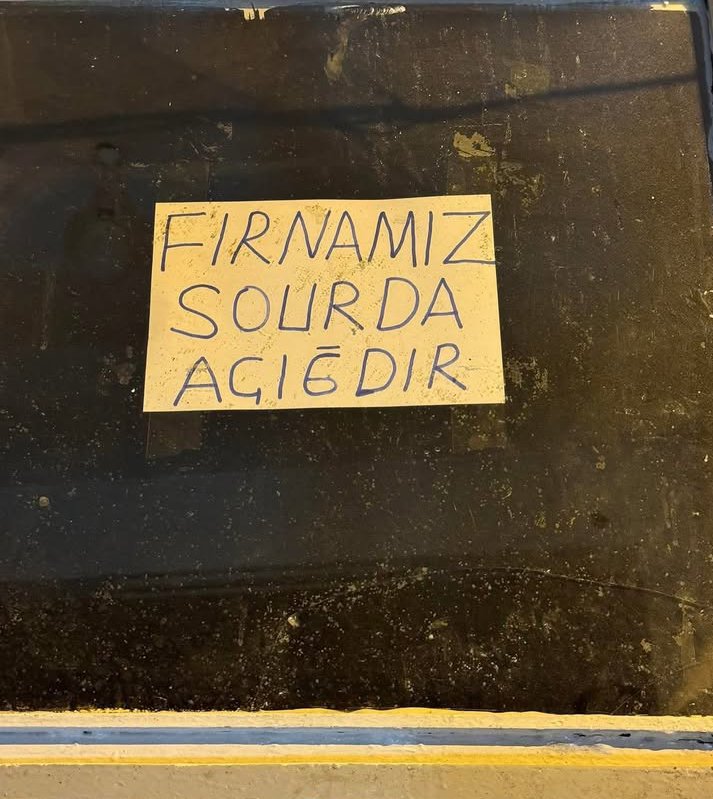 FIRNAMIZ
SOURDA
AÇIĞDIR